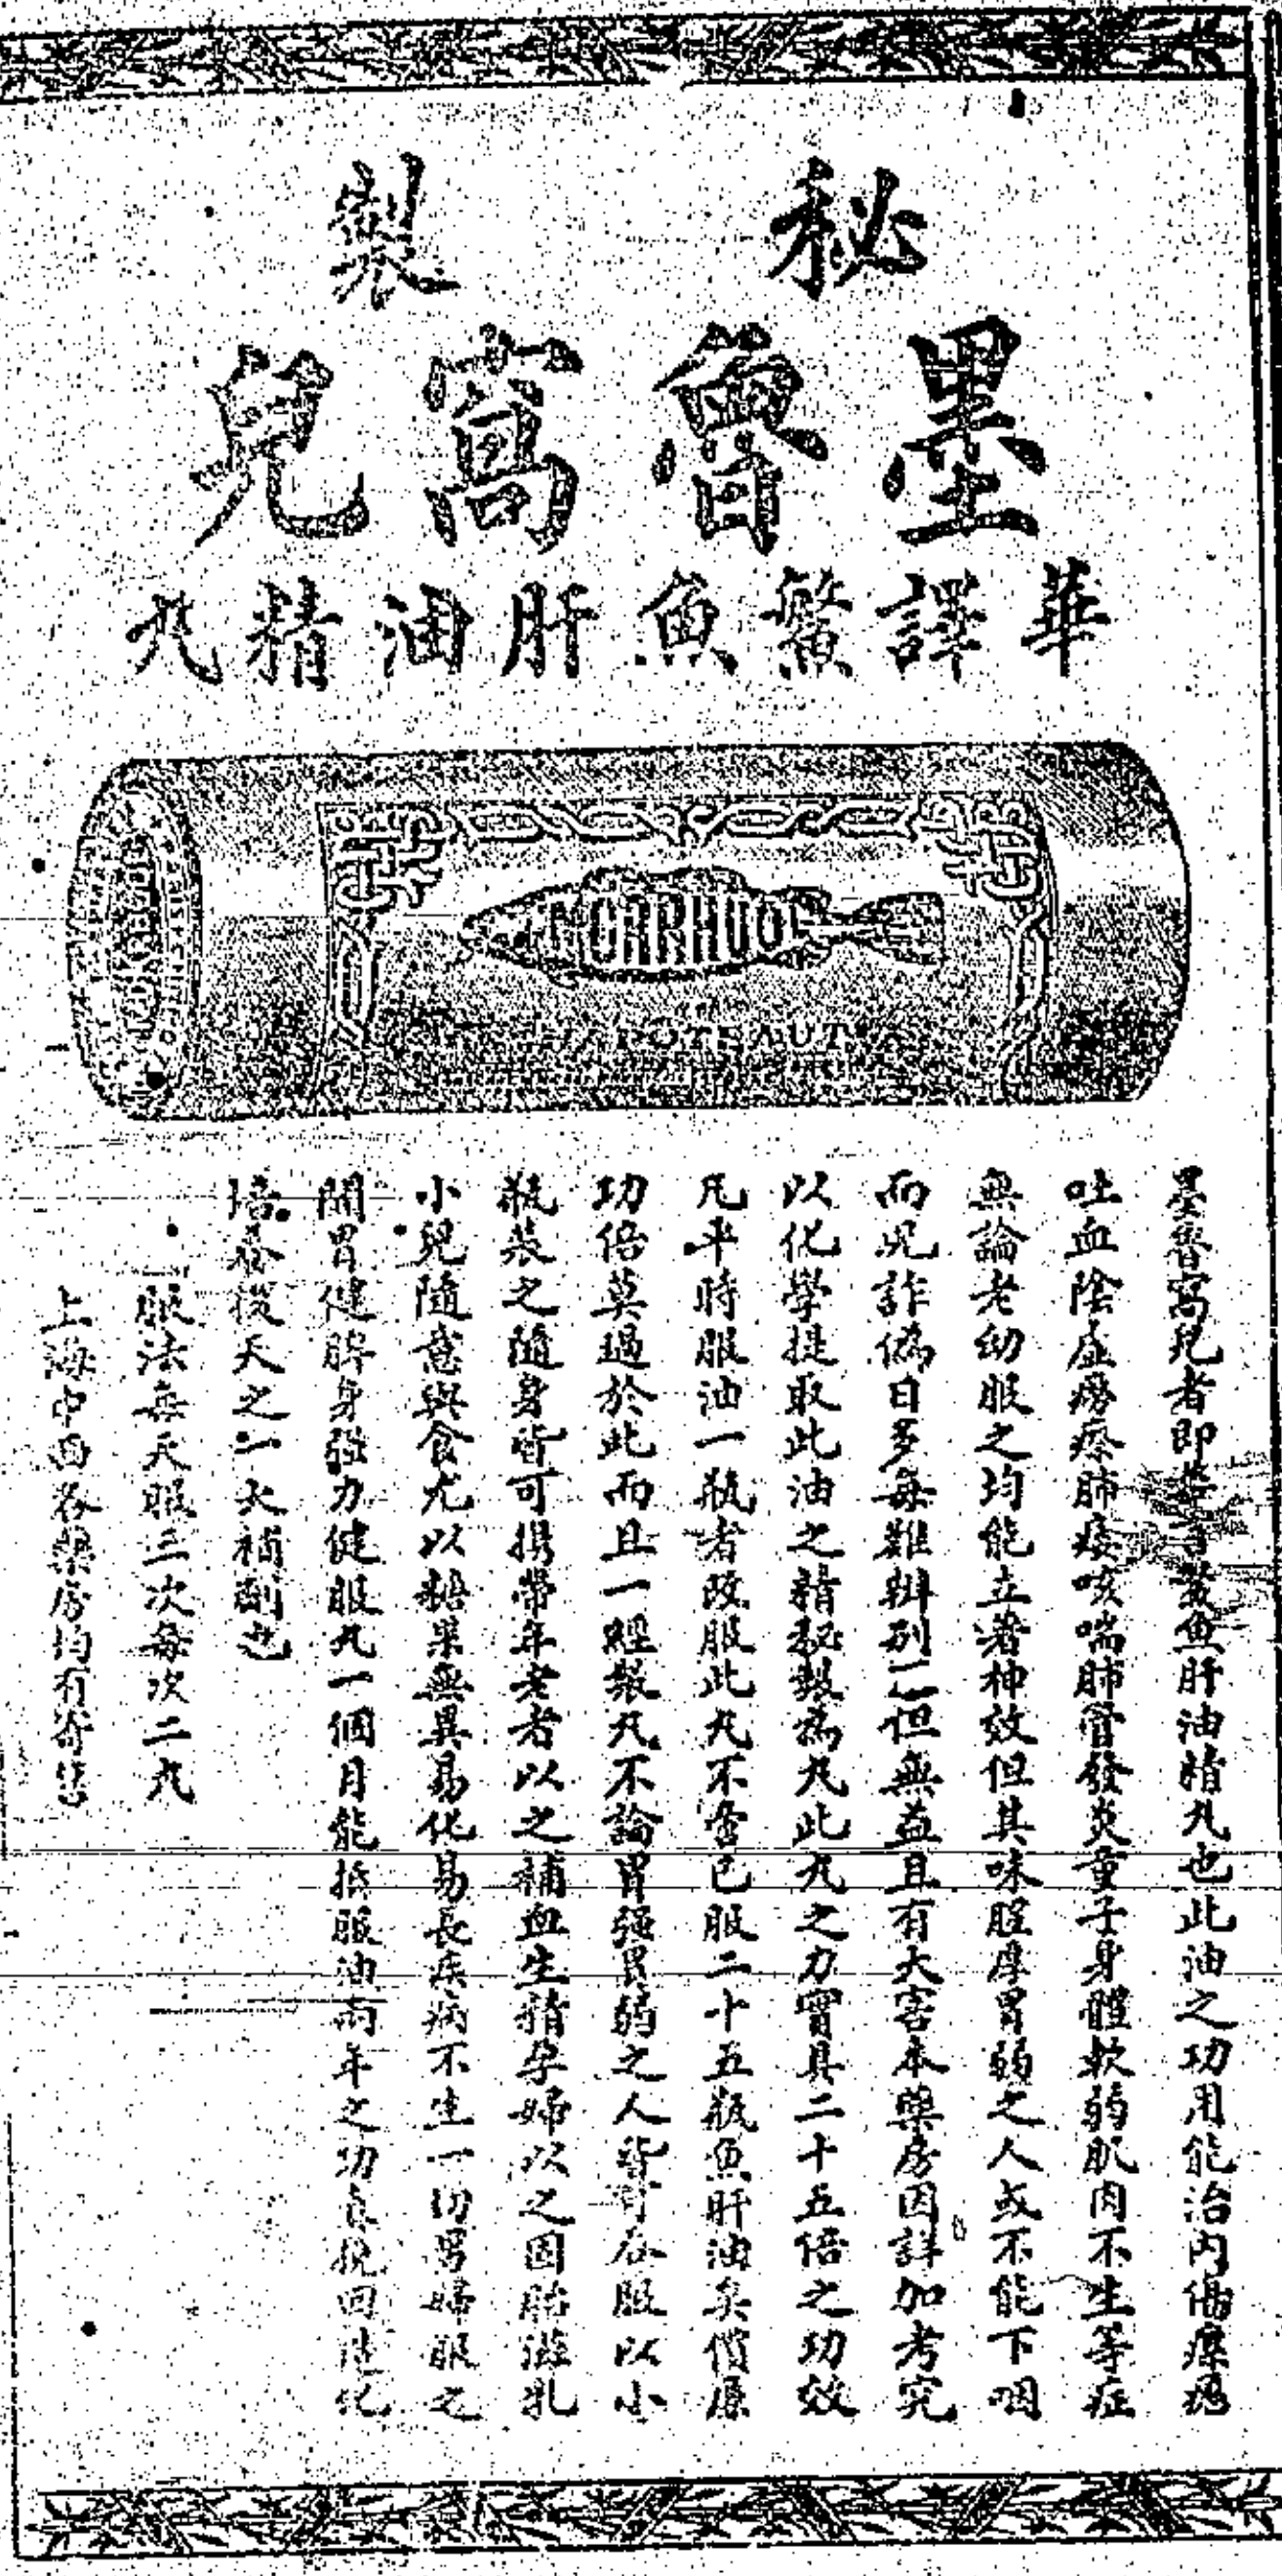 秘製
墨魯窩兒
華譯鰵魚肝油精丸
MORRHUOL
墨魯窩兒者即魚肝油精丸也此油之功用能治內傷瘰癧
吐血陰虛癆瘵肺痿咳喘肺管發炎童子身體軟弱肌肉不生等症
無論老幼服之均能立著神效但其味腥厚胃弱之人或不能下咽
而況詐偽日多每難辨别不但無益且有大害本藥房因詳加考究
以化學提取此油之精秘製為丸此丸之力實具二十五倍之功效
凡平時服油一瓶者改服此丸不啻已服二十五瓶魚肝油矣價廉
功倍莫過於此而且一經製丸不論胃强胃弱之人皆可吞服以小
瓶裝之隨身皆可携帶年老者以之補血生精孕婦以之固胎滋乳
小兒隨意與食尤以糖果無異易化易長疾病不生一切男婦服之
開胃健脾身强力健服丸一個月能抵服油兩年之功挽回造化
培後天之一大補劑也
服法每天服三次每次二丸
上海中西各藥房均有寄售